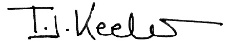 T. J. Keeler